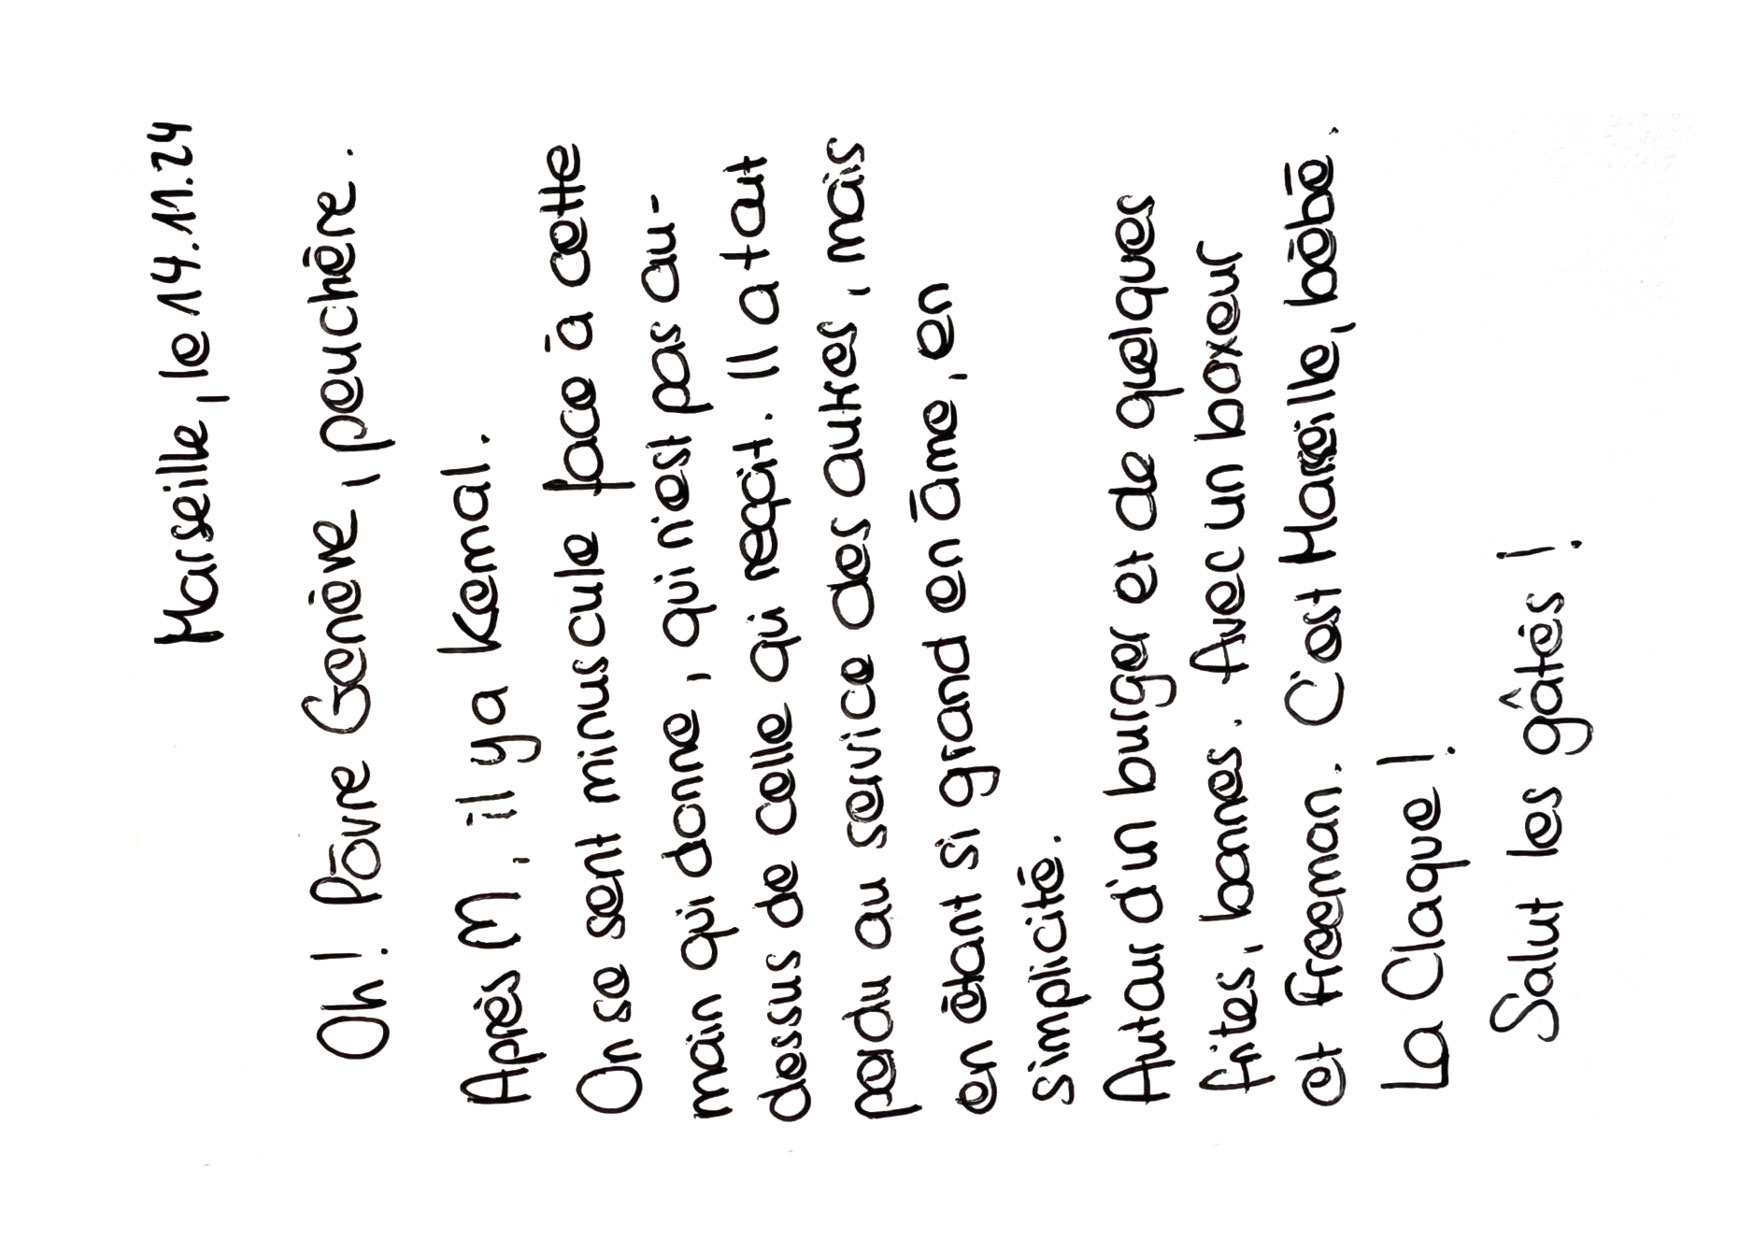 Marseille, le 14.11.24
Oh! Pôvre Genièvre, peuchère.
Après M, il y a Kemal.
On se sent minuscule face à cette
main qui donne, qui n'est pas au-
dessus de celle qui reçoit. Il a tout
perdu au service des autres, mais
en étant si grand en âme, en
simplicité.
Autour d'un burger et de quelques
frites, bonnes. Avec un boxeur
et Freeman. C'est Marseille, bébé.
La Claque!
Salut les gâtés!